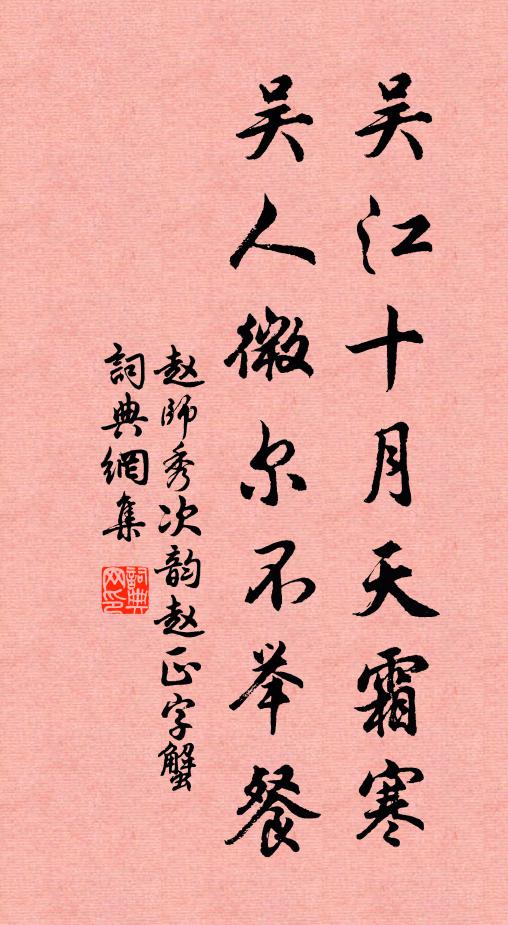 吴江十月天霜寒
吴人微尔不举餐
赵師秀次韵赵正字蟹
詞典網集
詞典网印